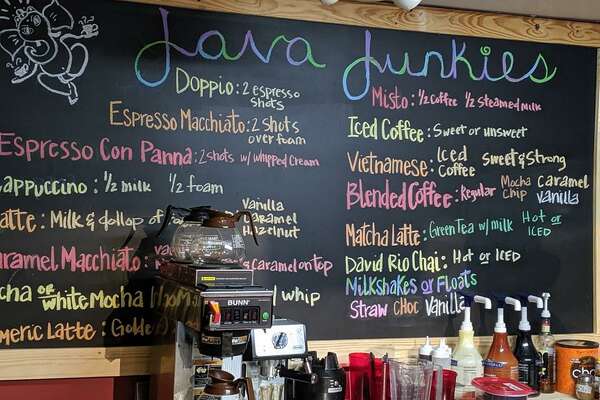 Java Junkies
Doppio: 2 espresso
shots
Espresso Macchiato: 2 shots
over foam
Espresso Con Panna: 2 shots w/ whipped cream
Cappuccino: 1/2 milk 1/2 foam
Latte: Milk & dollop of
Vanilla
Caramel
Hazelnut
Caramel Macchiato: caramel on top
Mocha or White Mocha whip
Turmeric Latte:
Misto: 1/2 Coffee 1/2 steamed milk
Iced Coffee: Sweet or unsweet
Vietnamese: Iced Coffee Sweet & Strong
Blended Coffee: Regular Mocha Chip Caramel Vanilla
Matcha Latte: Green Tea w/ milk Hot or ICED
David Rio Chai: Hot or ICED
Milkshakes or Floats
Straw Choc Vanilla
BUNN